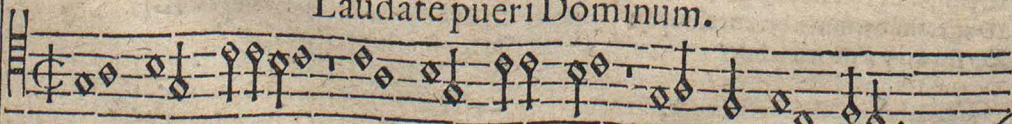 Laudate pueri Dominum.